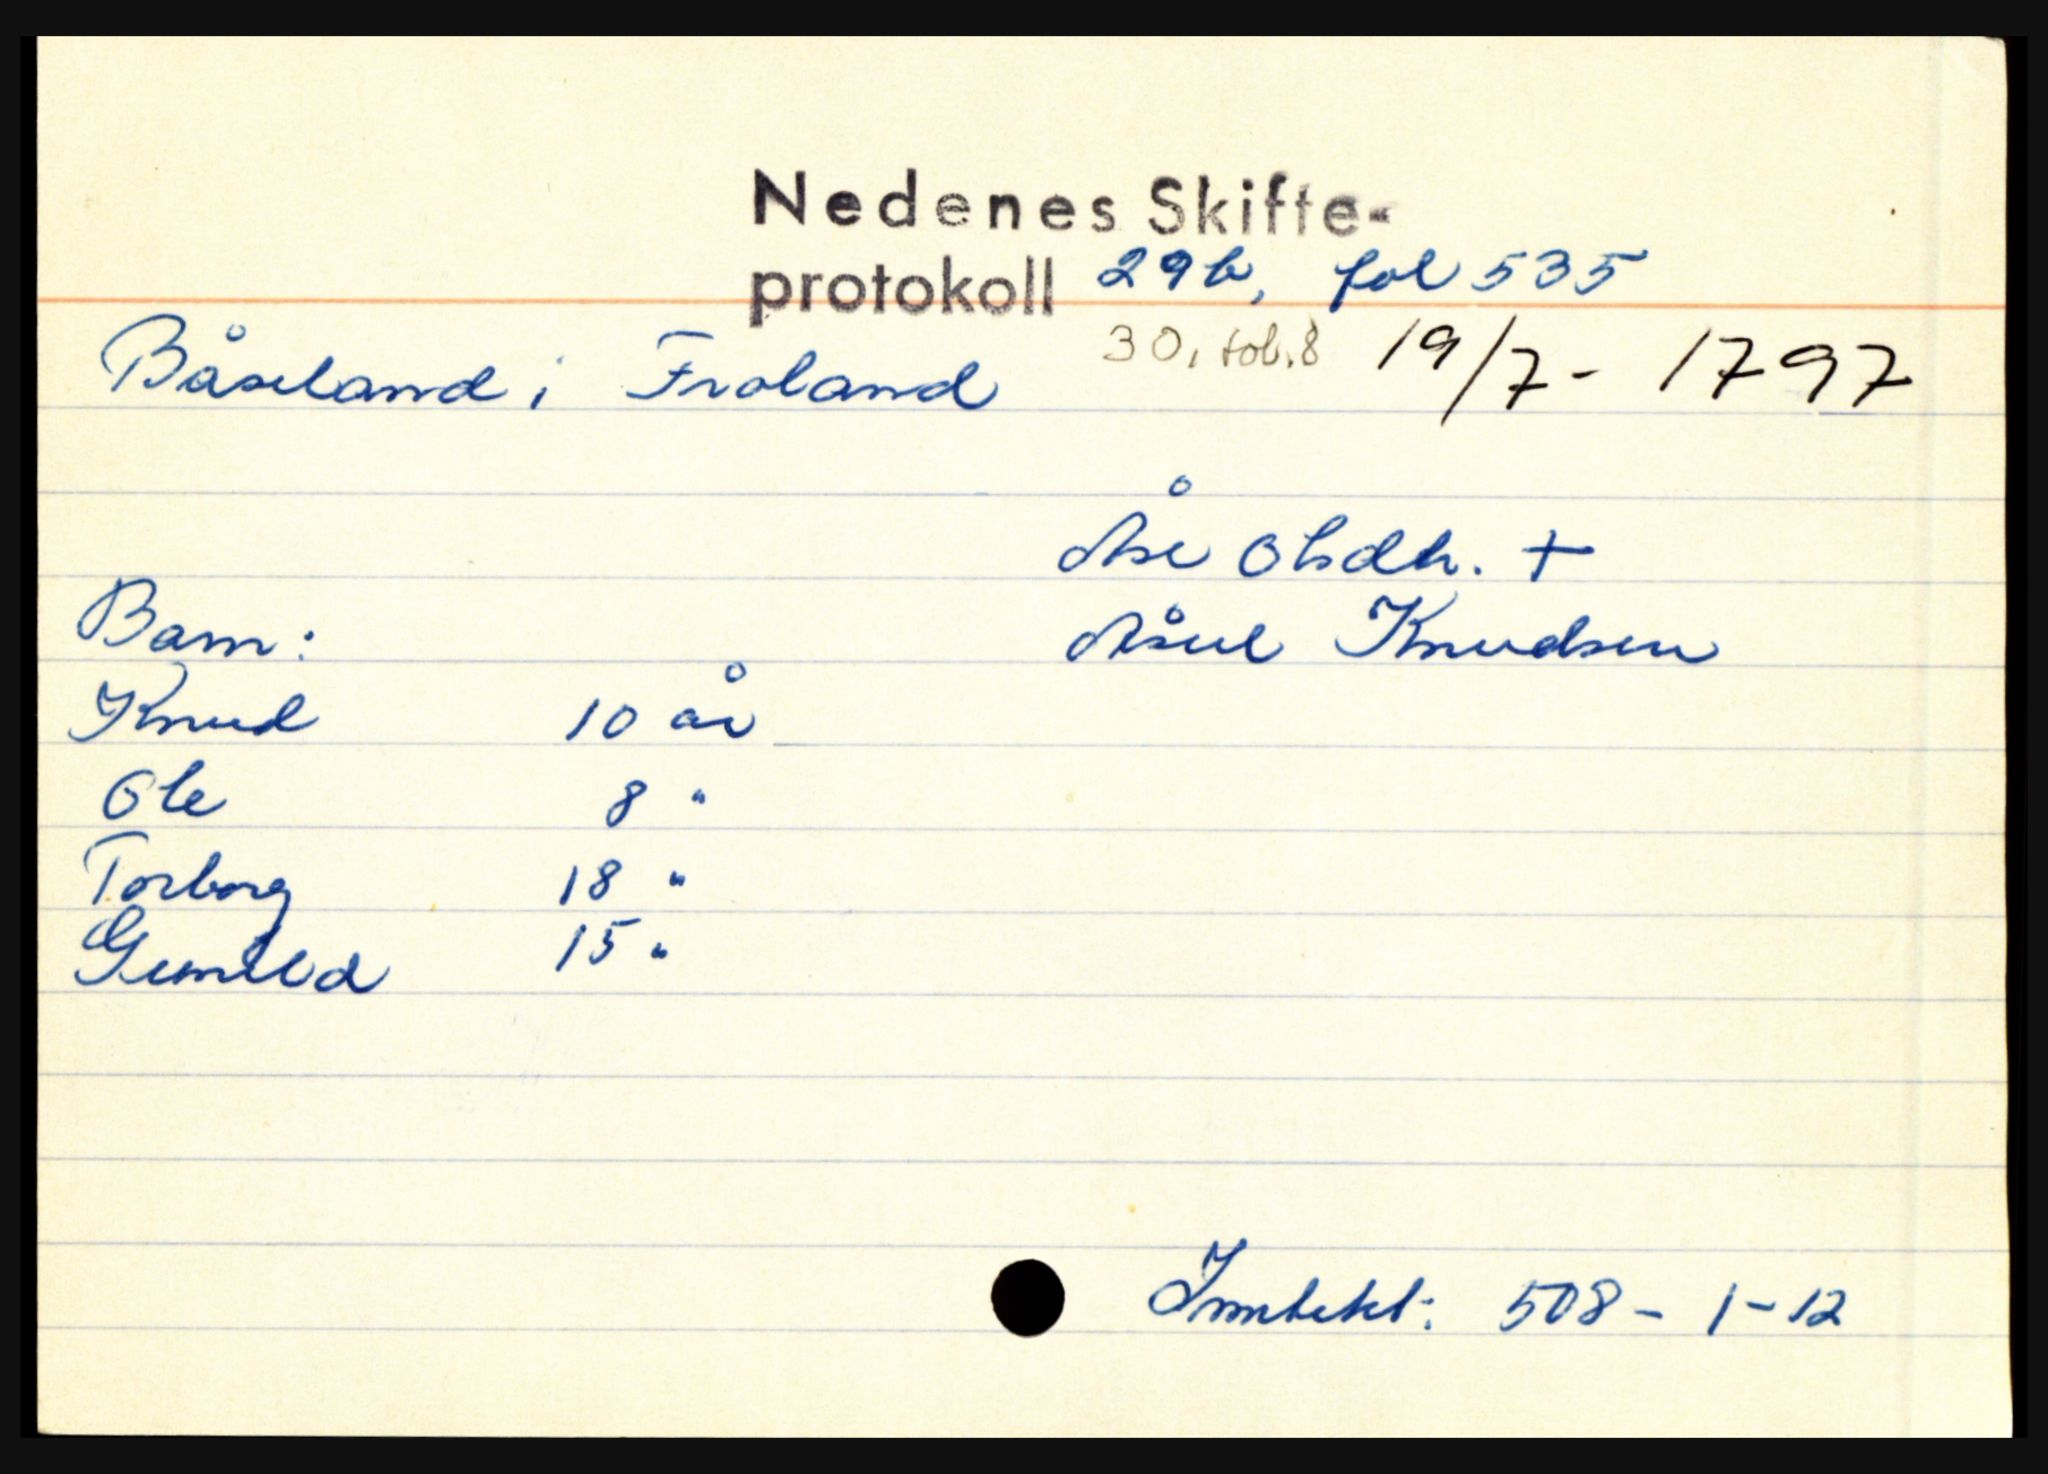 Nedenes Skifte-
protokoll 29b, fol 535
Båseland i Froland 30, fol. 8 19/7 - 1797
Åse Olsdtr. +
Barn: Åsul Knudsen
Knud 10 år
Ole 8 "
Torborg 18 "
Gunild 15 "
Inntekt: 508 - 1 - 12